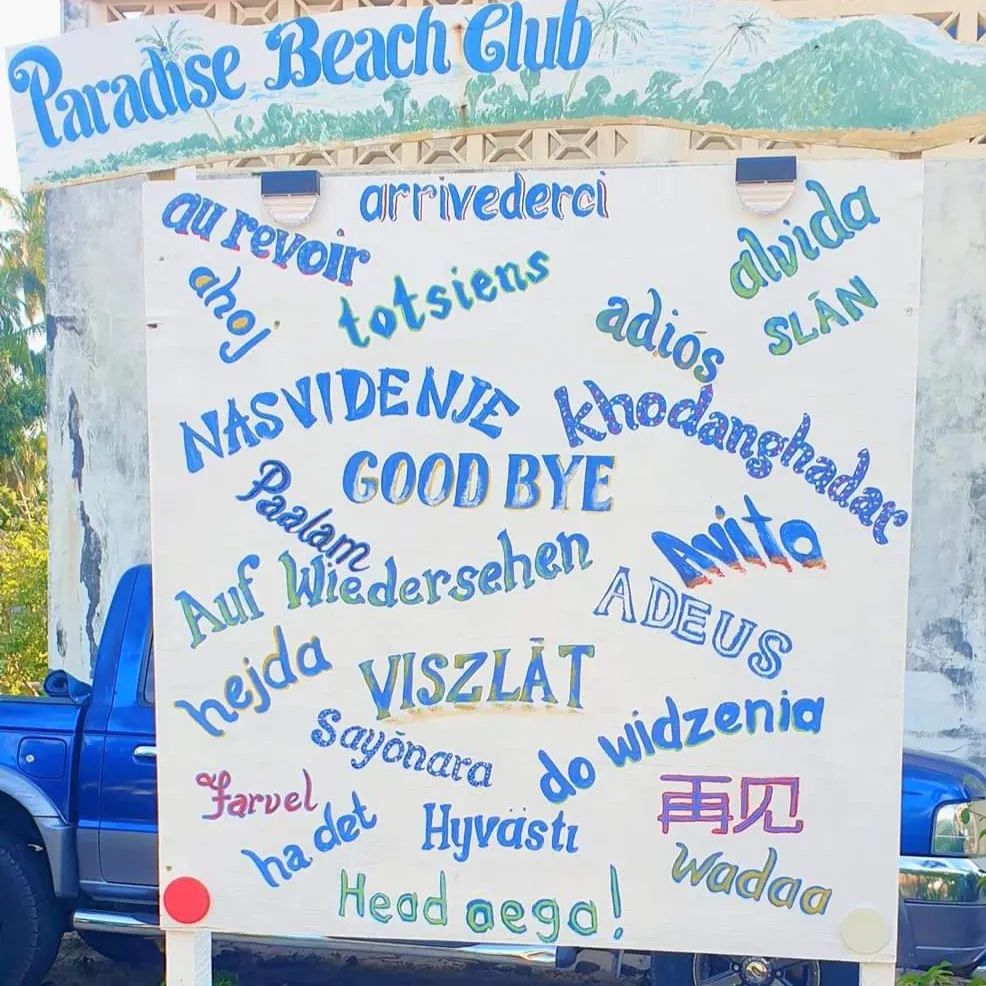 Paradise Beach Club
arrivederci
au revoir
alvida
ahoj
totsiens
adiós
SLÁN
NASVIDENJE
khodanghadar
GOOD BYE
Paalam
Avito
Auf Wiedersehen
ADEUS
hejda
VISZLĀT
Sayōnara
do widzenia
Farvel
ha det
Hyvästi
再见
wadaa
Head aega!